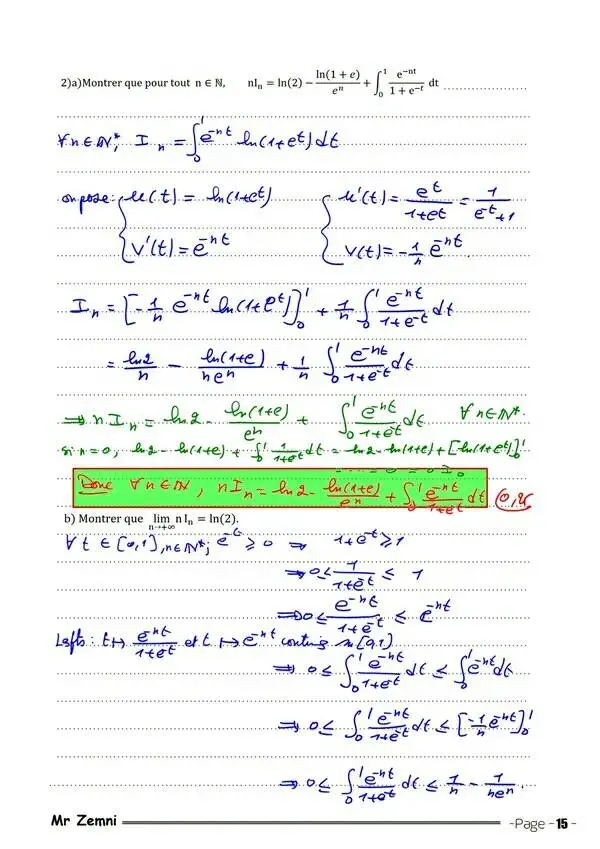 2)a)Montrer que pour tout n ∈ ℕ, nIₙ = ln(2) − ln(1 + e)/eⁿ + ∫₀¹ e⁻ⁿᵗ/(1 + e⁻ᵗ) dt
∀n∈ℕ*; Iₙ = ∫₀¹ e⁻ⁿᵗ ln(1+eᵗ) dt
on pose: { u(t) = ln(1+eᵗ) { u'(t) = eᵗ/(1+eᵗ) = 1/(e⁻ᵗ+1)
v'(t) = e⁻ⁿᵗ v(t) = −1/n e⁻ⁿᵗ.
Iₙ = [−1/n e⁻ⁿᵗ ln(1+eᵗ)]₀¹ + 1/n ∫₀¹ e⁻ⁿᵗ/(1+e⁻ᵗ) dt
= ln2/n − ln(1+e)/(neⁿ) + 1/n ∫₀¹ e⁻ⁿᵗ/(1+e⁻ᵗ) dt
⇒ n Iₙ = ln2 − ln(1+e)/eⁿ + ∫₀¹ e⁻ⁿᵗ/(1+e⁻ᵗ) dt ∀n∈ℕ*.
si n=0, ln2 − ln(1+e) + ∫₀¹ 1/(1+e⁻ᵗ) dt = ln2 − ln(1+e) + [ln(1+eᵗ)]₀¹
= 0 = 0 I₀
Donc ∀n∈ℕ, nIₙ = ln2 − ln(1+e)/eⁿ + ∫₀¹ e⁻ⁿᵗ/(1+e⁻ᵗ) dt
b) Montrer que lim n→+∞ n Iₙ = ln(2).
∀ t ∈ [0,1], n∈ℕ*; e⁻ᵗ ≥ 0 ⇒ 1+e⁻ᵗ ≥ 1
⇒ 0 ≤ 1/(1+e⁻ᵗ) ≤ 1
⇒ 0 ≤ e⁻ⁿᵗ/(1+e⁻ᵗ) ≤ e⁻ⁿᵗ
Les fts: t ↦ e⁻ⁿᵗ/(1+e⁻ᵗ) et t ↦ e⁻ⁿᵗ continues [0,1]
⇒ 0 ≤ ∫₀¹ e⁻ⁿᵗ/(1+e⁻ᵗ) dt ≤ ∫₀¹ e⁻ⁿᵗ dt
⇒ 0 ≤ ∫₀¹ e⁻ⁿᵗ/(1+e⁻ᵗ) dt ≤ [−1/n e⁻ⁿᵗ]₀¹
⇒ 0 ≤ ∫₀¹ e⁻ⁿᵗ/(1+e⁻ᵗ) dt ≤ 1/n − 1/(neⁿ).
Mr Zemni -Page - 15 -